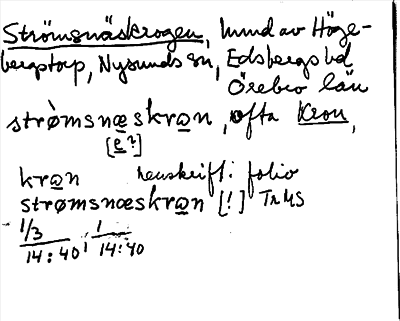 Strömsnäskrogen, hmd av Höge-
bergstorp, Nysunds sn, Edsbergs hd
Örebro län
strømsnæskrọn, ofta Kron,
[e?]
krọn renskrift: folio
strømsnæskrọn [!] TrMS
1/3 1
14:40; 14:40